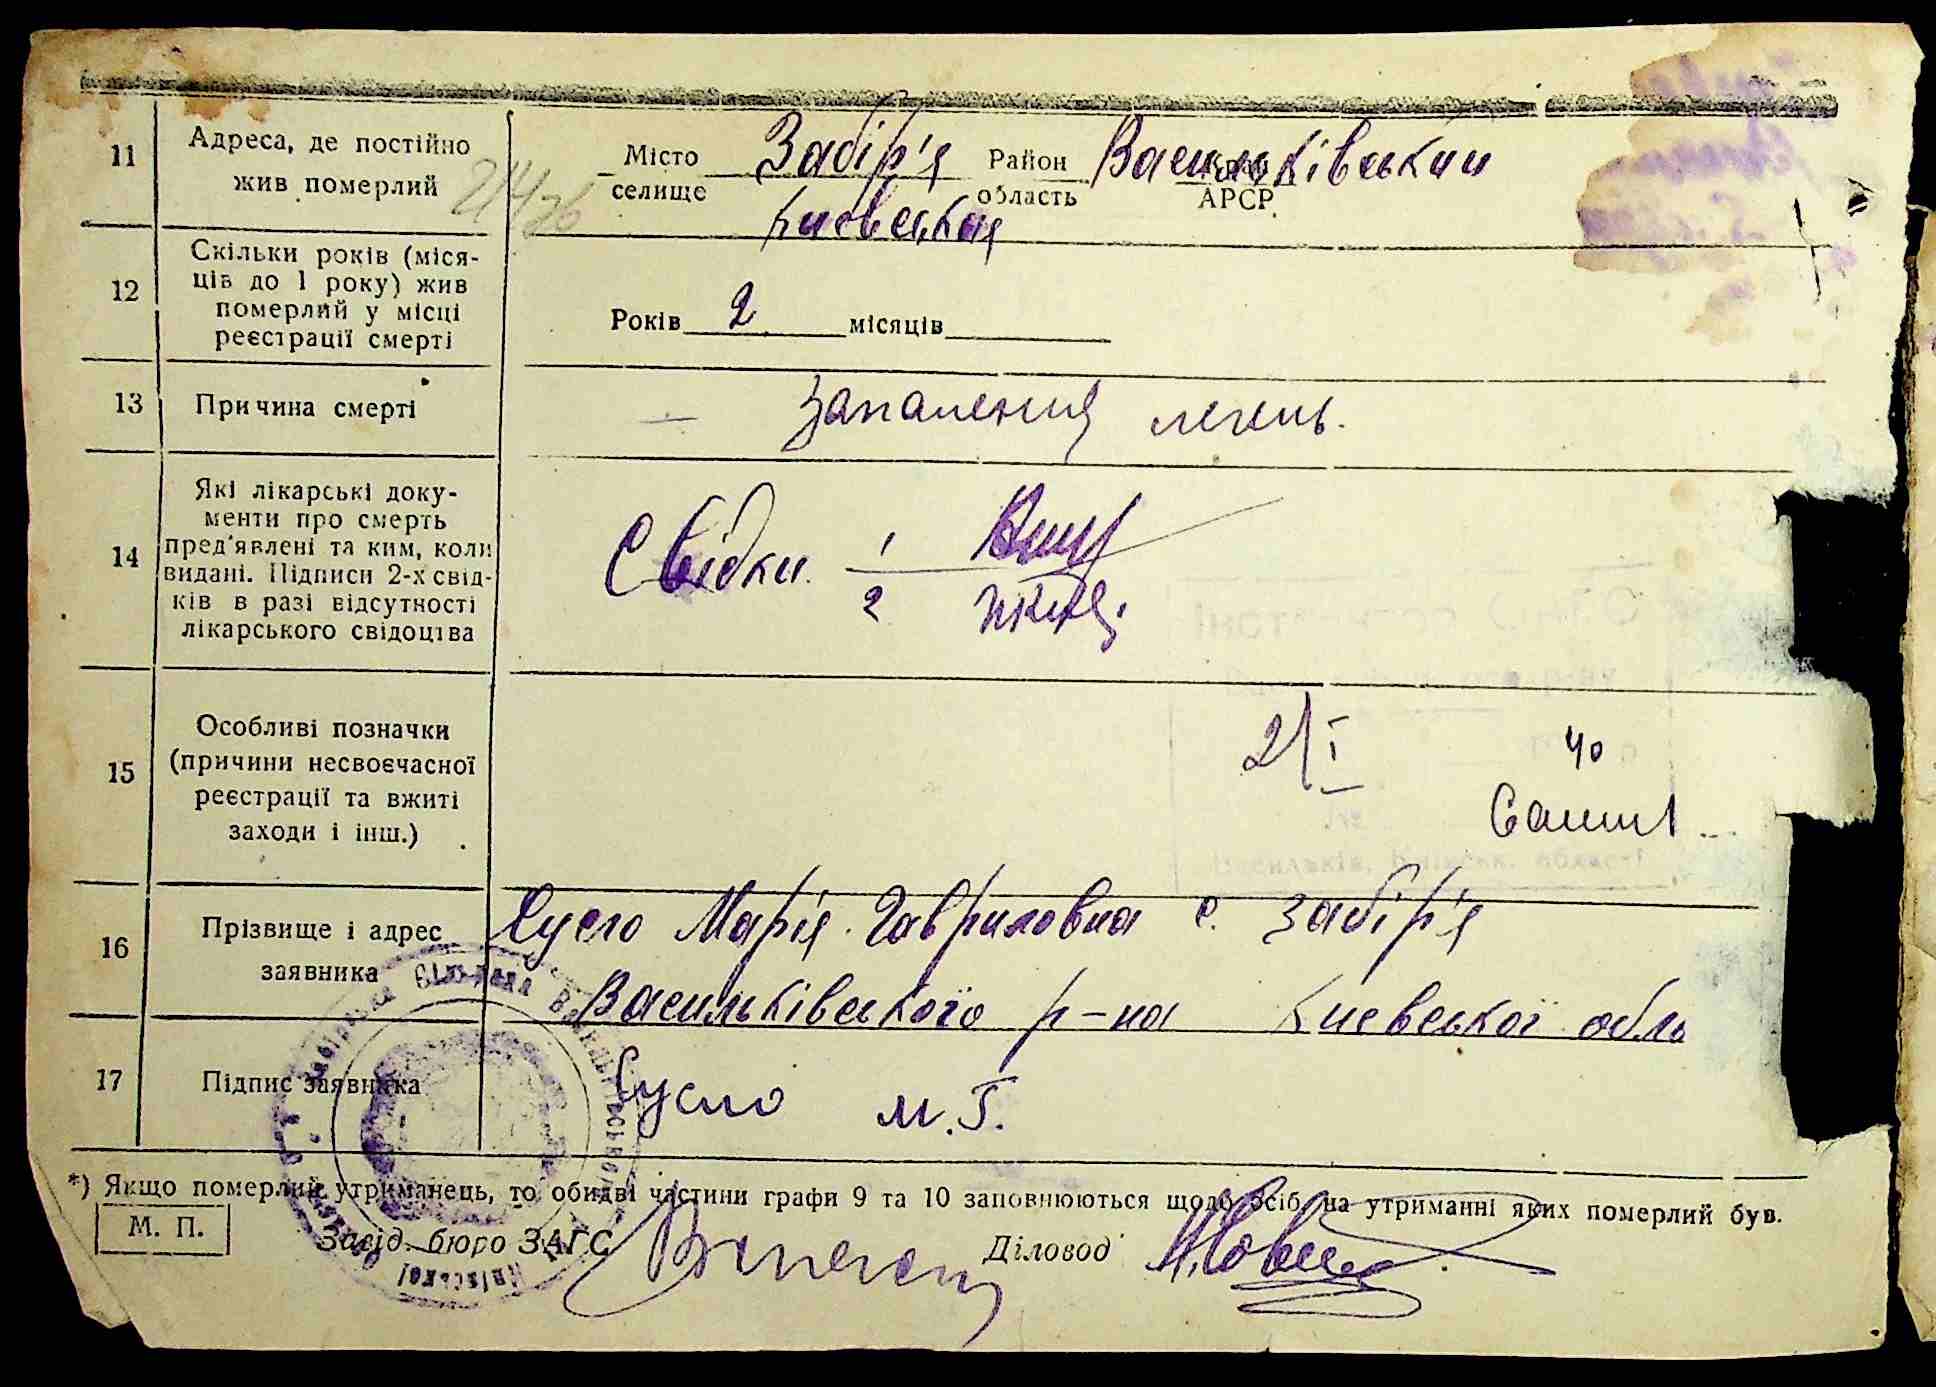 11
Адреса, де постійно
жив померлий
Місто
селище
Забір'я
Район
область
Васильківський
АРСР
Киевская
12
Скільки років (міся-
ців до 1 року) жив
померлий у місці
реєстрації смерті
Років 2 місяців
13
Причина смерті
— Запалення легень.
14
Які лікарські доку-
менти про смерть
пред'явлені та ким, коли
видані. Підписи 2-х свід-
ків в разі відсутності
лікарського свідоцтва
Свідки 1
2
15
Особливі позначки
(причини несвоєчасної
реєстрації та вжиті
заходи і інш.)
21/I 40
16
Прізвище і адрес
заявника
Сусло Марія Гавриловна с. Забір'я
Васильківського р-на Києвської обль
17
Підпис заявника
Сусло М.Г.
*) Якщо померлий утриманець, то обидві частини графи 9 та 10 заповнюються щодо осіб, на утриманні яких померлий був.
М. П.
Завід. бюро ЗАГС
Діловод